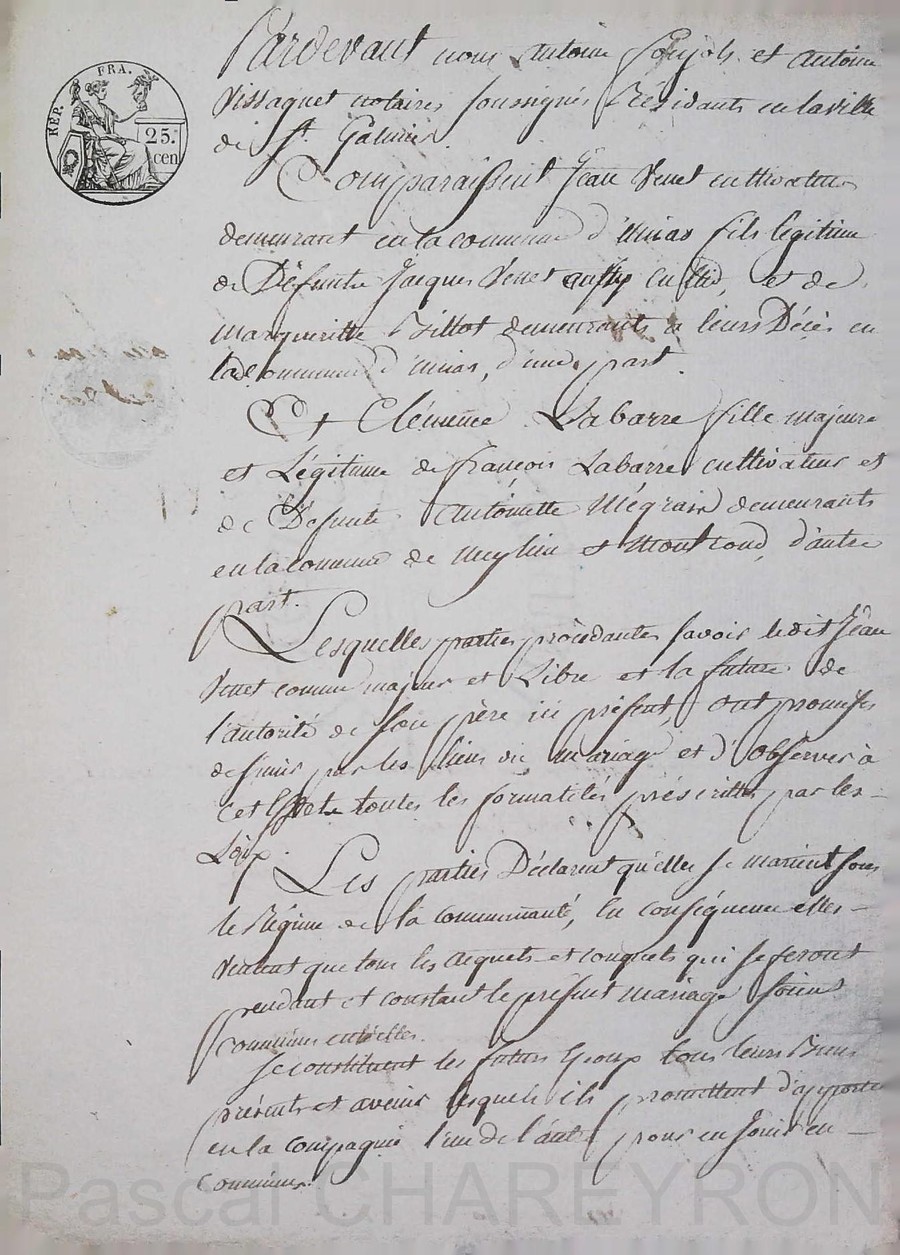 REP. FRA.
25. cen
Pardevant nous Antoine Poujols et Antoine
Vissaguet notaires soussignés Residants en la ville
de St. Galmier
Comparaissent Jean Venet cultivateur
demeurant en la commune d'unias fils légitime
de Défunts Jacques Venet aussy cultiv, et de
Margueritte Billot demeurants a leurs Décès en
la Commune d'unias, d'une part.
Et Clémence Labarre fille majeure
et Légitime de françois Labarre cultivateur et
de Defunte Antoinette Mégrain demeurants
en la commune de meylieu et Montrond, d'autre
part.
Lesquelles parties procédantes savoir ledit Jean
Venet comme majeur et Libre et la future de
l'autorité de son père ici présent, ont promises
de s'unir par les liens du mariage et d'observer à
cet Effet toutes les formalités préscrittes par les
Loix.
Les parties Déclarent qu'elles se marient sous
le Régime de la communauté, en conséquence elles
veulent que tous les acquets et conquets qui se feront
pendant et constant le présent mariage soient
communs entr'elles.
Se constituent les futurs Epoux tous leurs Biens
présents et avenir lesquels ils promettent d'apporter
en la compagnie l'un de l'autre pour en Jouir en
Communs.
Pascal CHAREYRON